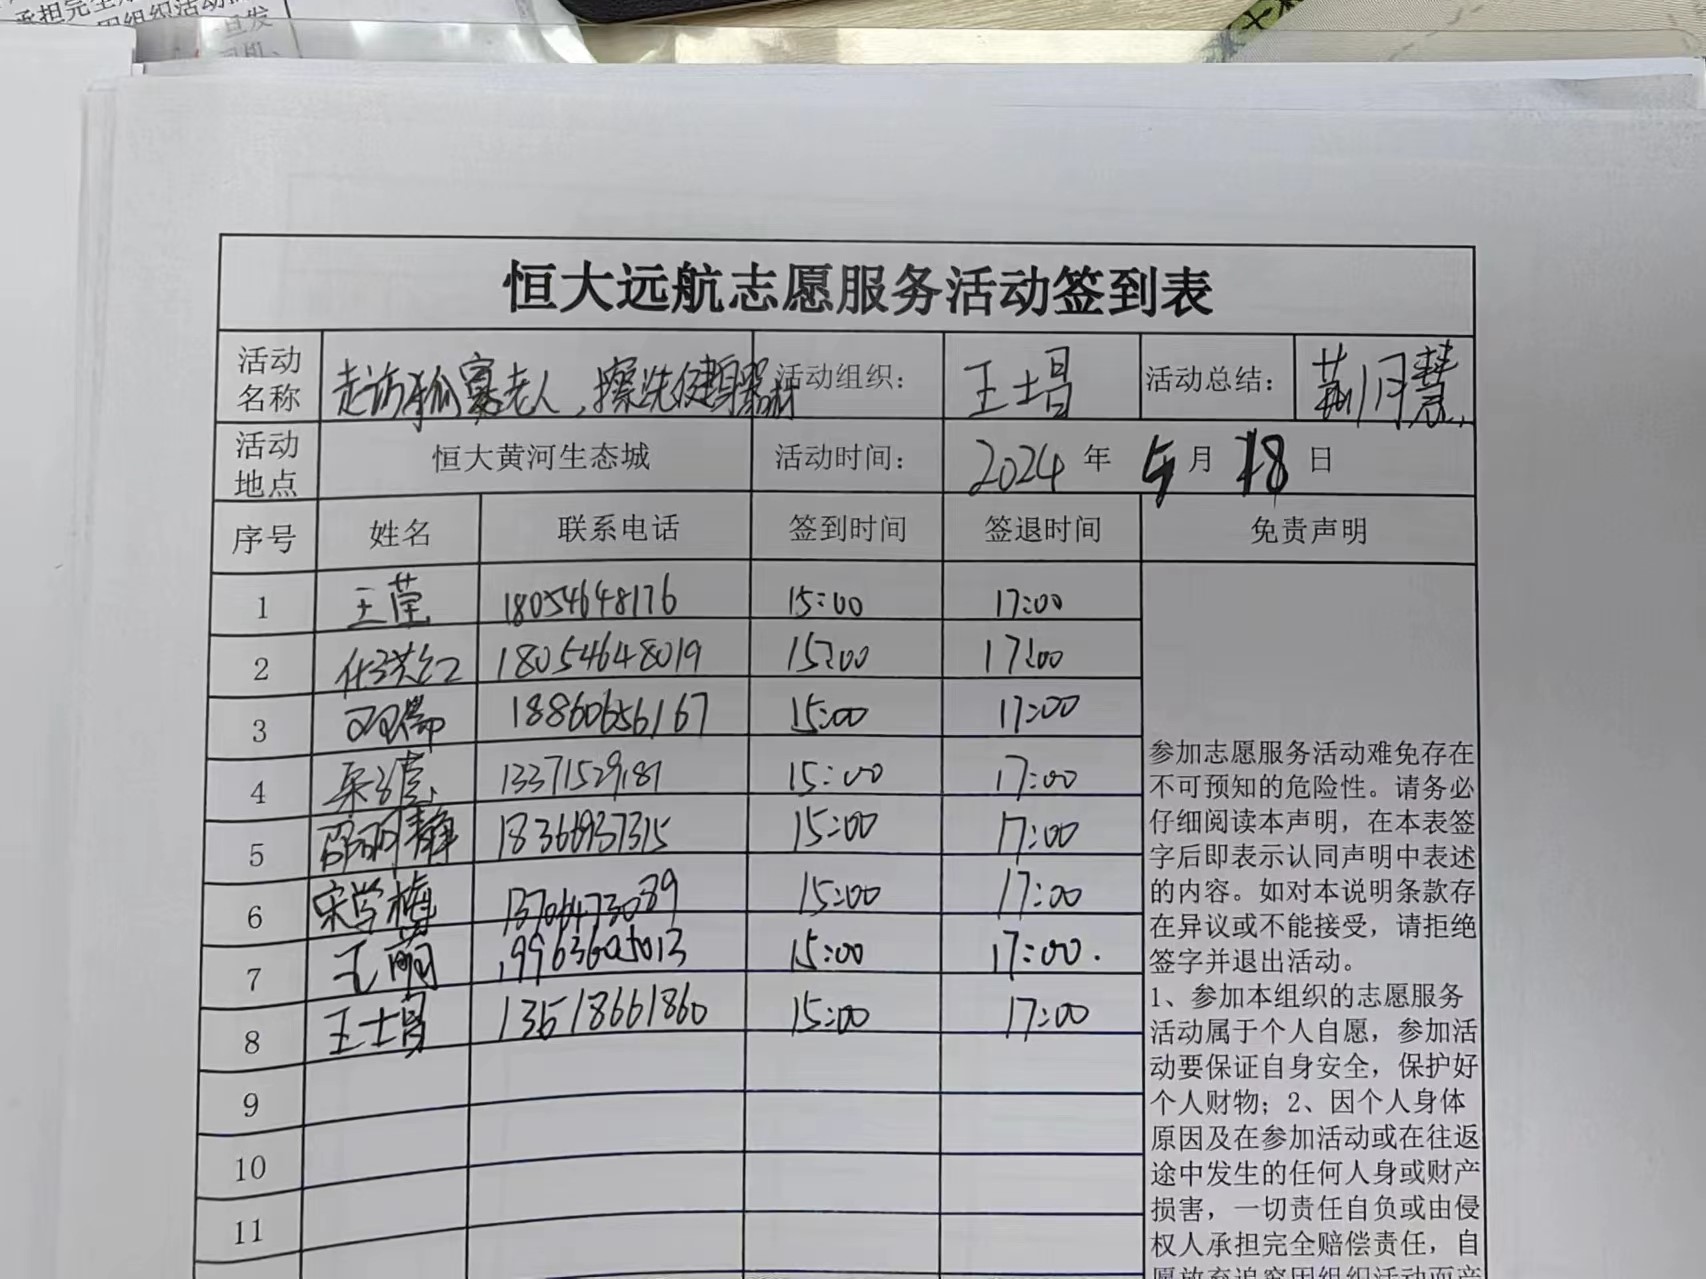 承担完全
因组织活动
恒大远航志愿服务活动签到表
活动名称 走访孤寡老人，擦洗健身器材 活动组织： 王士昌 活动总结： 荆月慧
活动地点 恒大黄河生态城 活动时间： 2024 年 5 月 18 日
序号 姓名 联系电话 签到时间 签退时间 免责声明
1 王莹 18054648176 15:00 17:00
2 任洪红 18054648019 15:00 17:00
3 18860656167 15:00 17:00
4 13371529187 15:00 17:00
5 邵丽静 18366937315 15:00 17:00
6 宋学梅 13706473089 15:00 17:00
7 王丽 15:00 17:00.
8 王士昌 13518661860 15:00 17:00
9
10
11
参加志愿服务活动难免存在
不可预知的危险性。请务必
仔细阅读本声明，在本表签
字后即表示认同声明中表述
的内容。如对本说明条款存
在异议或不能接受，请拒绝
签字并退出活动。
1、参加本组织的志愿服务
活动属于个人自愿，参加活
动要保证自身安全，保护好
个人财物；2、因个人身体
原因及在参加活动或在往返
途中发生的任何人身或财产
损害，一切责任自负或由侵
权人承担完全赔偿责任，自
愿放弃追究因组织活动而产